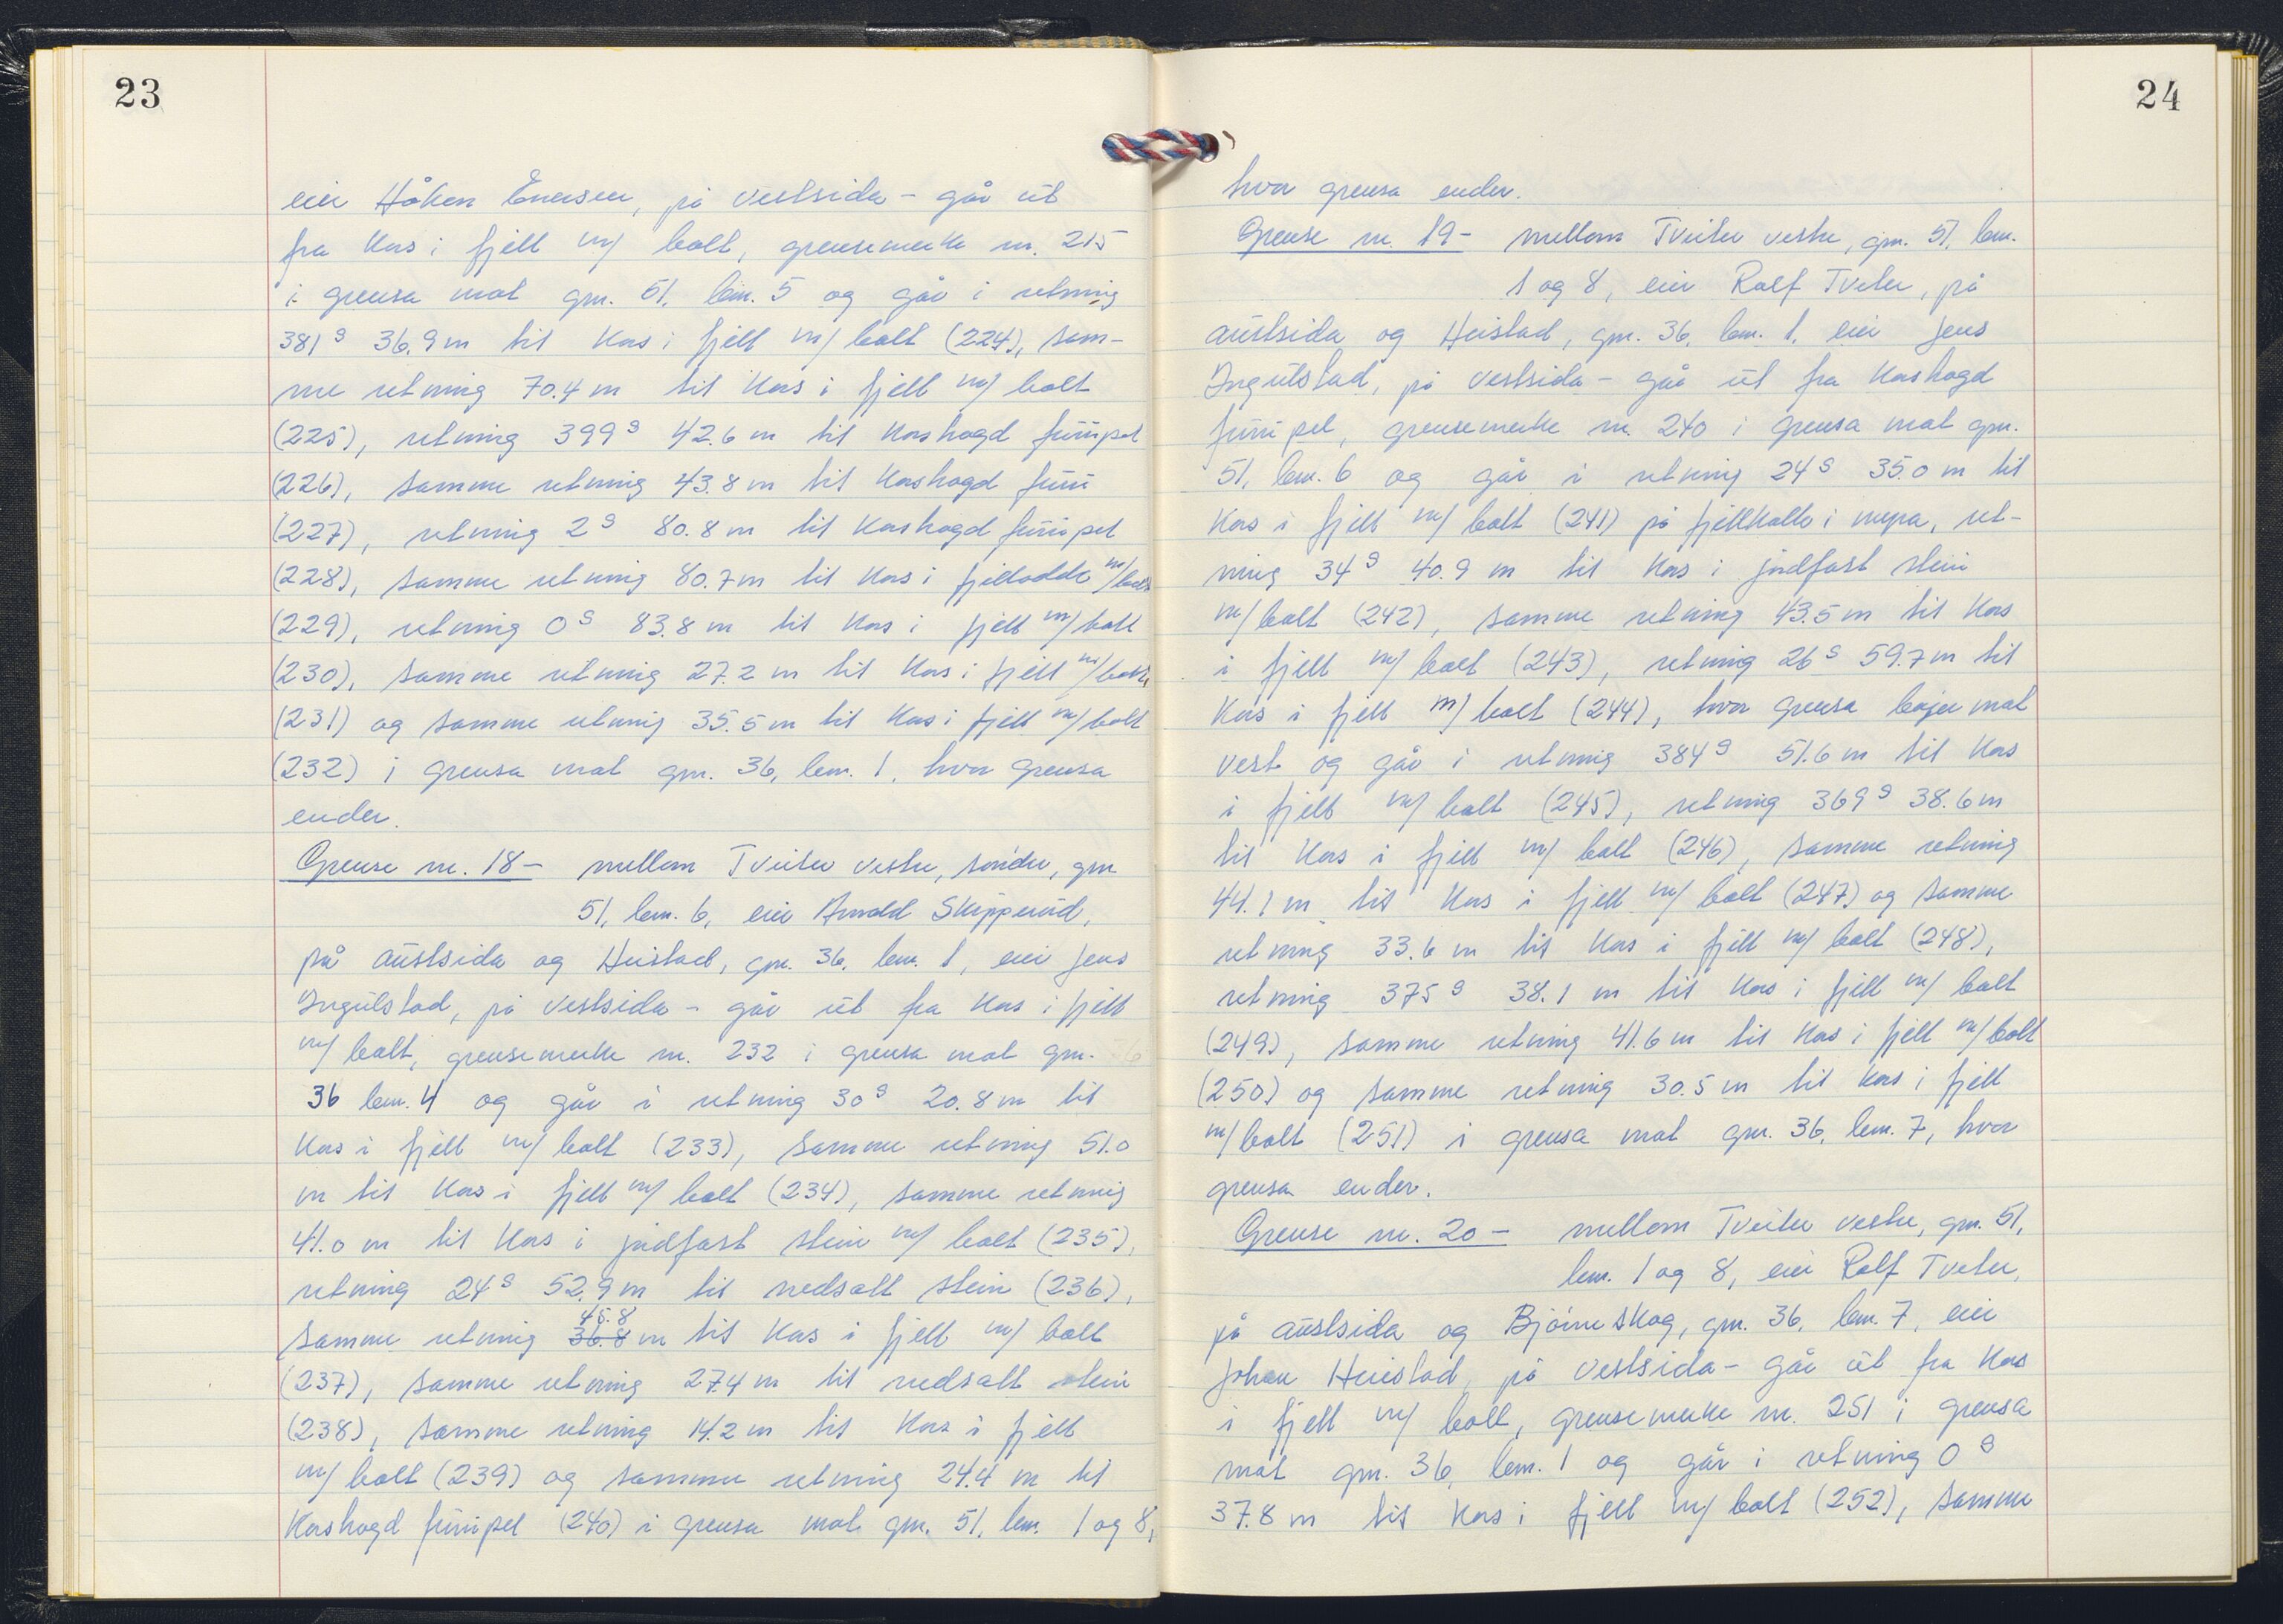 23
eier Håkon Enersen, på vestsida – går ut
fra kors i fjell m/ bolt, grensemerke nr. 215
i grensa mot gnr. 51, bnr. 5 og går i retning
381ᵍ 36.9 m til kors i fjell m/ bolt (224), sam-
me retning 70.4 m til kors i fjell m/ bolt
(225), retning 399ᵍ 42.6 m til korshogd furupel
(226), samme retning 43.8 m til korshogd furu
(227), retning 2ᵍ 80.8 m til korshogd furupel
(228), samme retning 80.7 m til kors i fjellodde m/bolt
(229), retning 0ᵍ 83.8 m til kors i fjell m/bolt
(230), samme retning 27.2 m til kors i fjell m/bolt
(231) og samme retning 35.5 m til kors i fjell m/ bolt
(232) i grensa mot gnr. 36, bnr. 1, hvor grensa
ender.
Grense nr. 18 – mellom Tveiter vestre, søndre, gnr.
51, bnr. 6, eier Arnold Skipperud,
på austsida og Heistad, gnr. 36, bnr. 1, eier Jens
Ingulstad, på vestsida – går ut fra kors i fjell
m/ bolt, grensemerke nr. 232 i grensa mot gnr.
36 bnr. 4 og går i retning 30ᵍ 20.8 m til
kors i fjell m/ bolt (233), samme retning 51.0
m til kors i fjell m/ bolt (234), samme retning
41.0 m til kors i jordfast stein m/ bolt (235),
retning 24ᵍ 52.9 m til nedsatt stein (236),
45.8
samme retning 36.8 m til kors i fjell m/ bolt
(237), samme retning 27.4 m til nedsatt stein
(238), samme retning 14.2 m til kors i fjell
m/ bolt (239) og samme retning 24.4 m til
korshogd furupel (240) i grensa mot gnr. 51, bnr. 1 og 8,
24
hvor grensa ender.
Grense nr. 19 – mellom Tveiter vestre, gnr. 51, bnr.
1 og 8, eier Rolf Tveter, på
austsida og Heistad, gnr. 36, bnr. 1, eier Jens
Ingulstad, på vestsida – går ut fra korshogd
furupel, grensemerke nr. 240 i grensa mot gnr.
51, bnr. 6 og går i retning 24ᵍ 35.0 m til
kors i fjell m/ bolt (241) på fjellkolle i myra, ret-
ning 34ᵍ 40.9 m til kors i jordfast stein
m/bolt (242), samme retning 43.5 m til kors
i fjell m/ bolt (243), retning 26ᵍ 59.7 m til
kors i fjell m/ bolt (244), hvor grensa bøyer mot
vest og går i retning 384ᵍ 51.6 m til kors
i fjell m/ bolt (245), retning 369ᵍ 38.6 m
til kors i fjell m/ bolt (246), samme retning
44.1 m til kors i fjell m/ bolt (247) og samme
retning 33.6 m til kors i fjell m/ bolt (248),
retning 375ᵍ 38.1 m til kors i fjell m/ bolt
(249), samme retning 41.6 m til kors i fjell m/bolt
(250) og samme retning 30.5 m til kors i fjell
m/bolt (251) i grensa mot gnr. 36, bnr. 7, hvor
grensa ender.
Grense nr. 20 – mellom Tveiter vestre, gnr. 51,
bnr. 1 og 8, eier Rolf Tveter,
på austsida og Bjørneskog, gnr. 36, bnr. 7, eier
Johan Heiestad, på vestsida – går ut fra kors
i fjell m/ bolt, grensemerke nr. 251 i grensa
mot gnr. 36, bnr. 1 og går i retning 0ᵍ
37.8 m til kors i fjell m/ bolt (252), samme